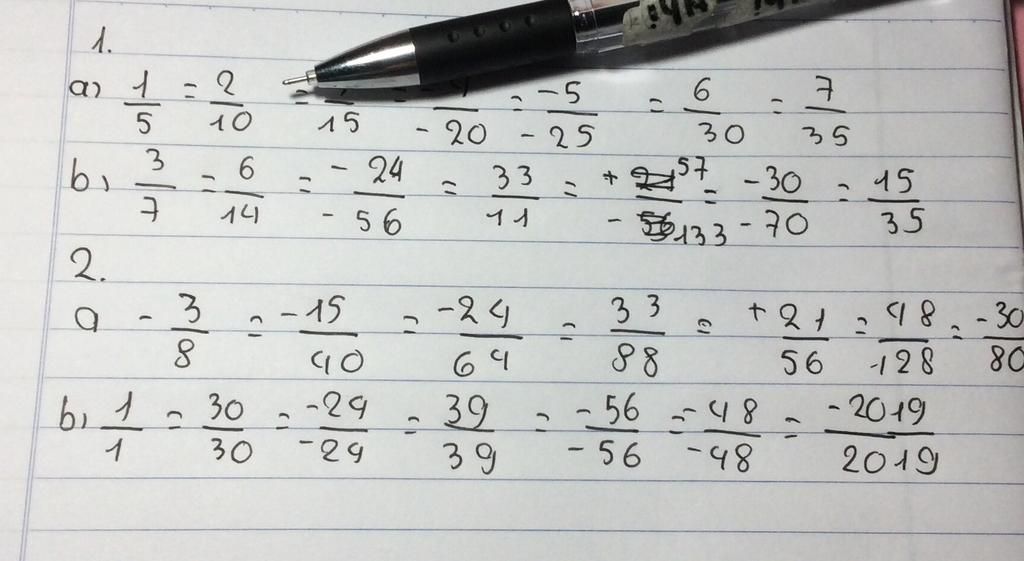 1.
a) 1/5 = 2/10 = /15 = /-20 = -5/-25 = 6/30 = 7/35
b) 3/7 = 6/14 = -24/-56 = 33/11 = +57/-133 = -30/-70 = 15/35
2.
a - 3/8 = -15/40 = -24/64 = 33/88 = +21/56 = 48/-128 = -30/80
b) 1/1 = 30/30 = -29/-29 = 39/39 = -56/-56 = -48/-48 = -2019/2019